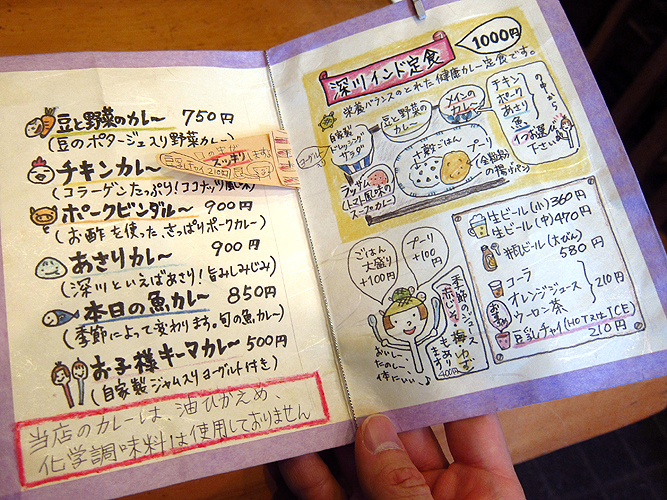 豆と野菜のカレ〜 750円
(豆のポタージュ入り野菜カレ〜)
チキンカレ〜
(コラーゲンたっぷり！ココナッツ風味)
ポークビンダル〜 900円
(お酢を使った さっぱりポークカレ〜)
あさりカレ〜 900円
(深川といえばあさり！旨みしみじみ)
本日の魚カレ〜 850円
(季節によって変わります。旬の魚カレ〜)
お子様キーマカレ〜 500円
(自家製ジャム入りヨーグルト付き)
当店のカレーは、油ひかえめ、
化学調味料は使用しておりません
スッキリ
豆乳チャイ210円
深川インド定食
1000円
栄養バランスのとれた健康カレー定食です。
自家製
ドレッシング
サラダ
豆と野菜の
カレ〜
メインの
カレ〜
チキン
ポーク
あさり
魚
の中から
1つお選び
下さい
ヨーグルト
ラッサム
(トマト風味の
スープカレ〜)
ごはん
プーリ
(全粒粉
の揚げパン)
ごはん
大盛り
+100円
プーリ
+100円
季節のジュース
赤じそ・梅・ゆず
もあります
400円
おいし〜
たのし〜
体にいい〜♪
生ビール(小) 360円
生ビール(中) 470円
瓶ビール(大びん)
580円
コーラ
オレンジジュース
ウーロン茶
210円
豆乳チャイ(HOT又はICE)
210円